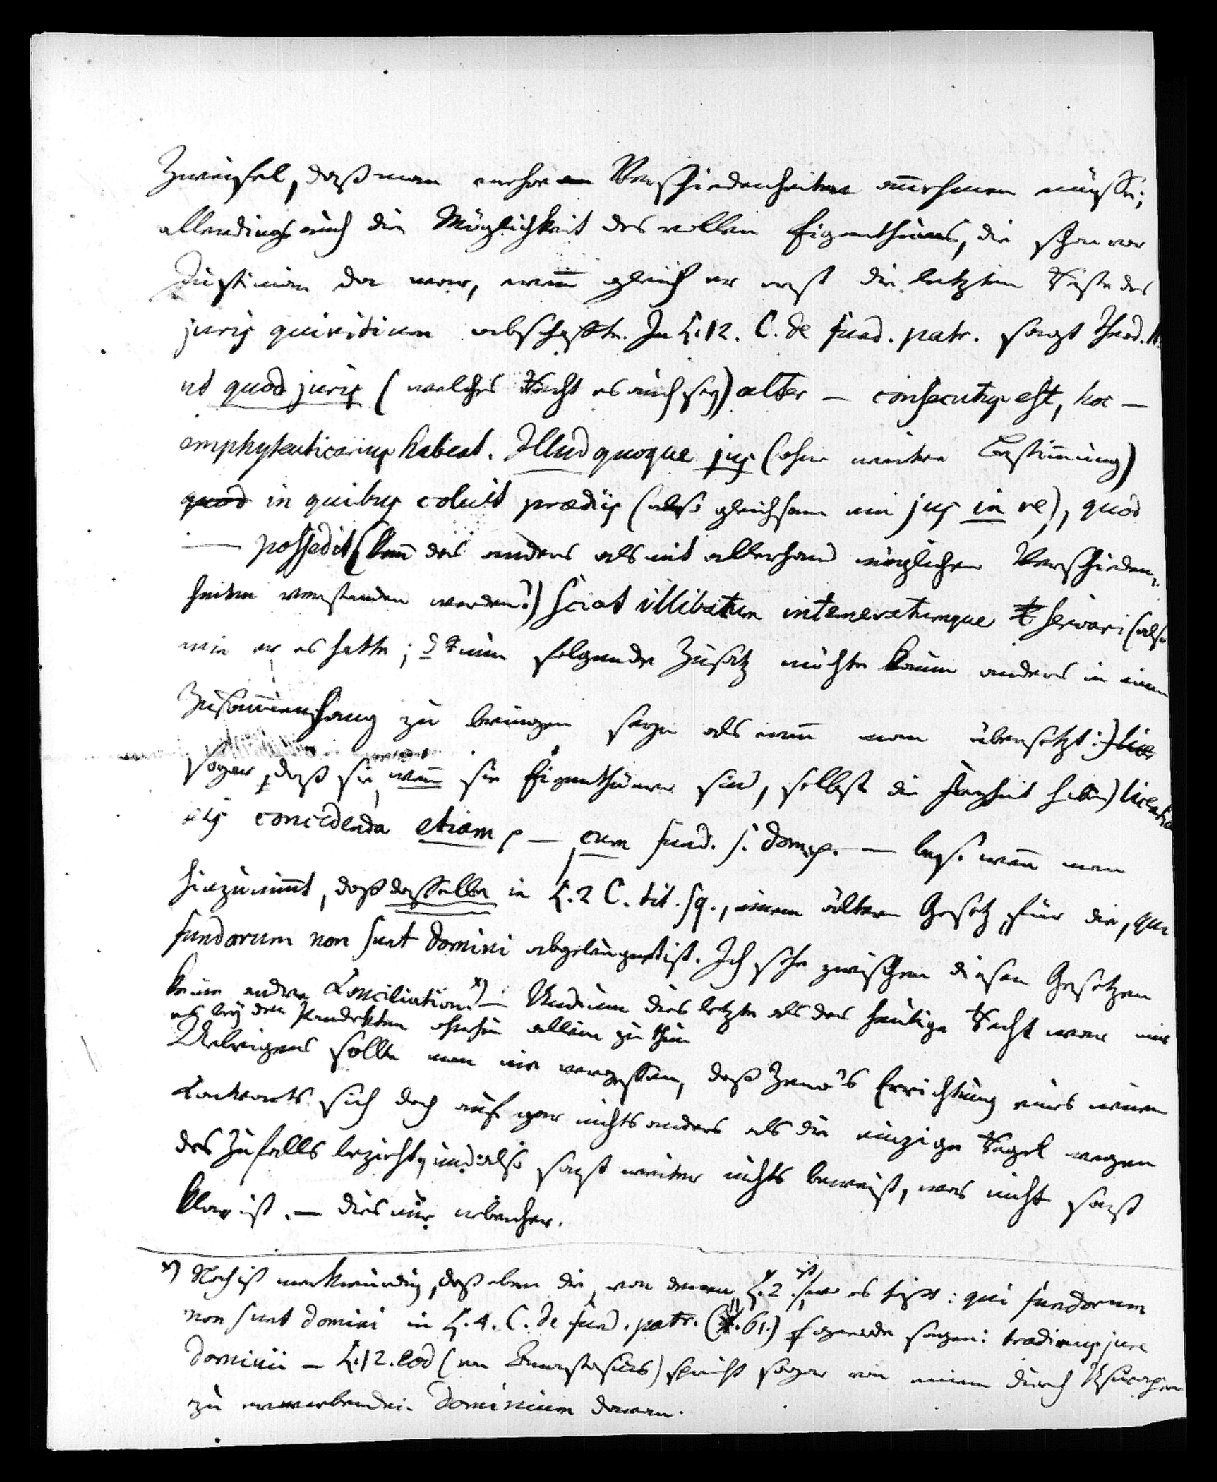 Zweifel, daß man mehrere Verschiedenheiten annehmen müsse;
allerdings auch die Möglichkeit des vollen Eigenthums, die schon vor
Justinian da war, wenn gleich er erst die letzten Reste des
juris quiritium abschaffte. In L. 12. C. de fund. patr. sagt Theod. II.
ut quod juris (welches Recht es auch sey) alter — consecutus est, hoc —
emphyteuticarius habeat. Illud quoque jus (ohne weitere Bestimmung)
quod in quibus coluit praediis (also gleichsam ein jus in re), quod
— possedit (kann das anders als mit allerhand möglichen Verschieden-
heiten verstanden werden?) sciat illibatum intemeratumque servari (also
wie er es hatte; der nun folgende Zusatz möchte kaum anders in einen
Zusammenhang zu bringen seyn als wenn man übersetzt:) lice
sogar, daß sie, wenn sie Eigenthümer sind, selbst die Freyheit haben) licentia
iis concedenda etiam — cum fund. s. domp. — bes. wenn man
hinzunimmt, daß dasselbe in L. 2 C. tit. sq., einem ältern Gesetz, für die, qui
fundorum non sunt domini abgeläugnet ist. Ich sehe zwischen diesen Gesetzen
keine andere Conciliation *) — Und um dies letzte als das heutige Recht war mir
es bey den Pandekten ohnehin allein zu thun
Uebrigens sollte man nie vergessen, daß Zeno's Errichtung eines neuen
Contracts sich doch auf gar nichts anders als die einzige Regel wegen
des Zufalls bezieht, und also sonst weiter nichts beweist, was nicht sonst
klar ist. — Dies nur nebenher.
*) Noch ist merkwürdig, daß eben die, von denen L. 2. es heißt: qui fundorum
non sunt domini in L. 4. C. de fund. patr. (XI. 61.) sagen: tradimus jure
dominii — L. 12. eod (von Anastasius) spricht sogar von einem durch
zu erwerbenden Dominium daran.